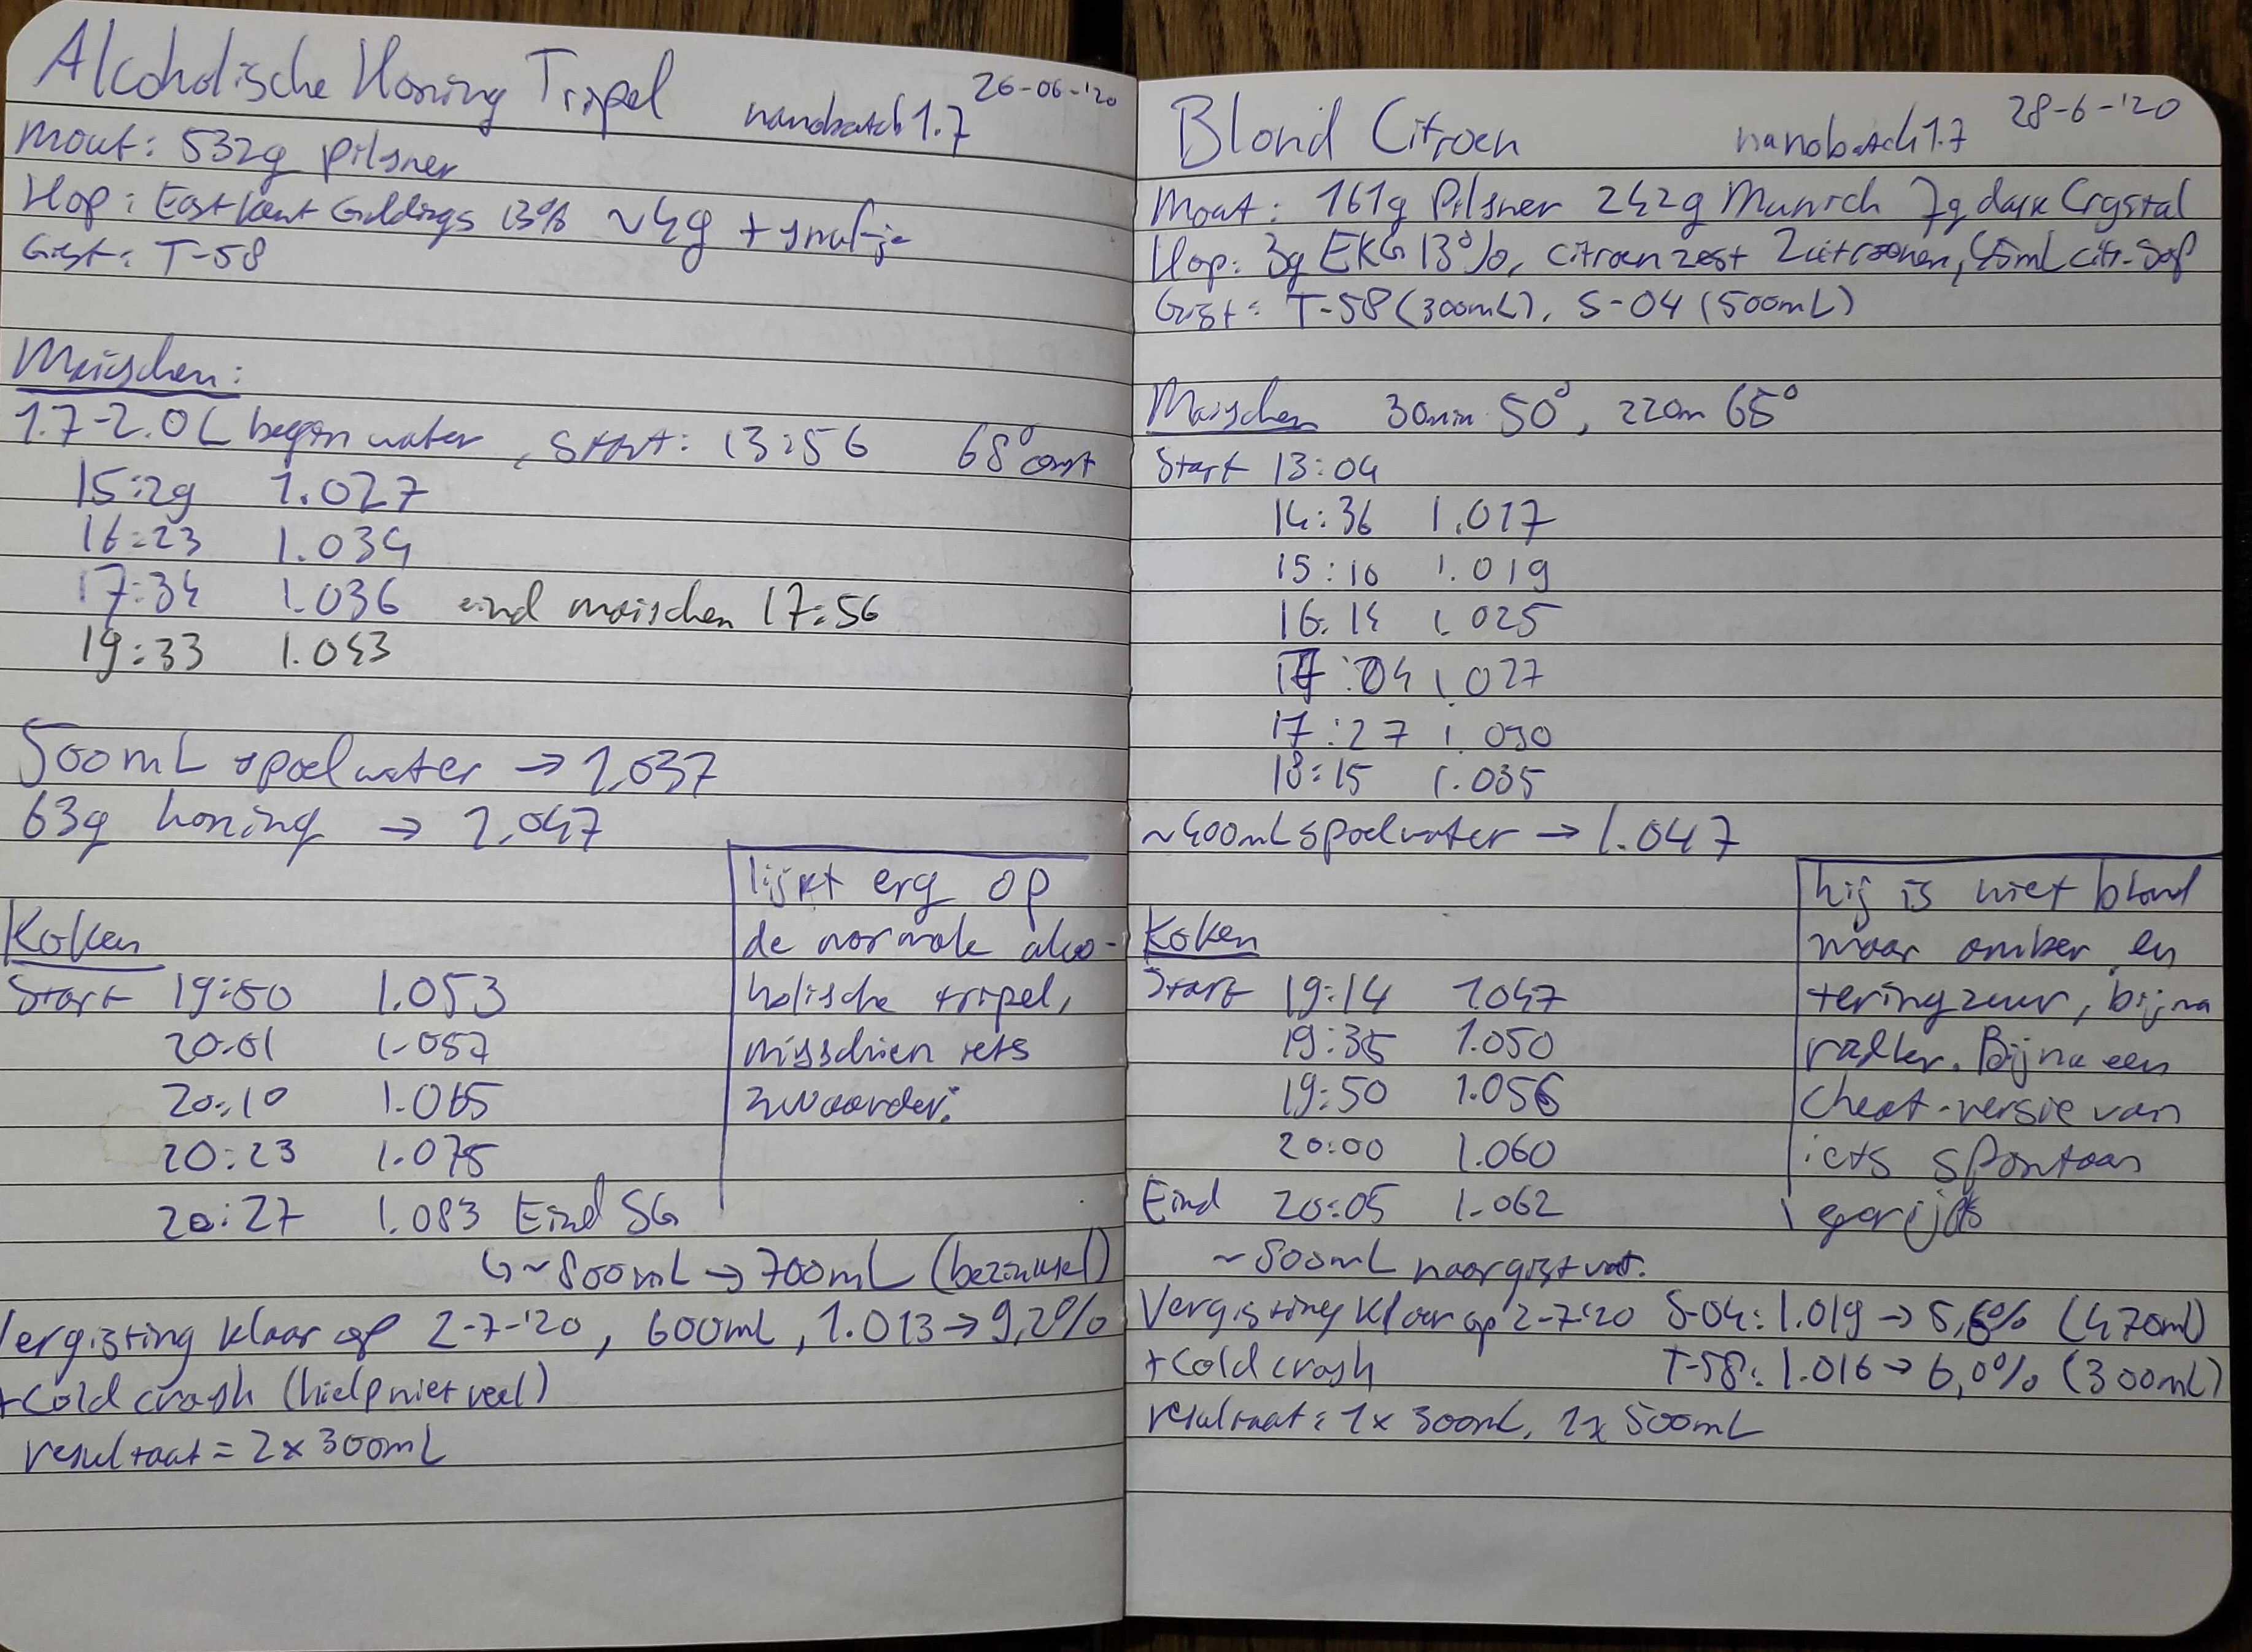 Alcoholische Honing Tripel nanobatch 1.7 26-06-'20
Mout: 532g pilsner
Hop: East Kent Goldings 13% ~4g + snufje
Gist: T-58
Maischen:
1.7-2.0L begin water, start: 13:56 68° const
15:29 1.027
16:23 1.034
17:34 1.036 eind maischen 17:56
19:33 1.043
500mL spoelwater → 1,037
63g honing → 1,047
Koken
Start 19:50 1.053
20:01 1.057
20:10 1.065
20:23 1.075
20:27 1.083 Eind SG
↳ ~800mL → 700mL (bezinksel)
lijkt erg op
de normale alco-
holische tripel,
misschien iets
zwaarder.
Vergisting klaar op 2-7-'20, 600mL, 1.013 → 9,2%
+ Cold crash (hielp niet veel)
resultaat = 2x 300mL
Blond Citroen nanobatch 1.7 28-6-'20
Mout: 161g Pilsner 242g Munich 7g dark Crystal
Hop: 3g EKG 13%, citroenzest 2 citroenen, 45mL citr. sap
Gist: T-58 (300mL), S-04 (500mL)
Maischen 30min 50°, 220m 65°
Start 13:04
14:36 1.017
15:16 1.019
16:14 1.025
17:04 1.027
17:27 1.030
18:15 1.035
~400mL spoelwater → 1.047
Koken
Start 19:14 1.047
19:35 1.050
19:50 1.056
20:00 1.060
Eind 20:05 1.062
~800mL naar gistvat.
hij is niet blond
maar amber en
teringzuur, bijna
radler. Bijna een
cheat-versie van
iets spontaan
gerijpts
Vergisting klaar op 2-7-'20 S-04: 1.019 → 5,6% (470ml)
+ Cold crash T-58: 1.016 → 6,0% (300mL)
resultaat: 1x 300mL, 1x 500mL